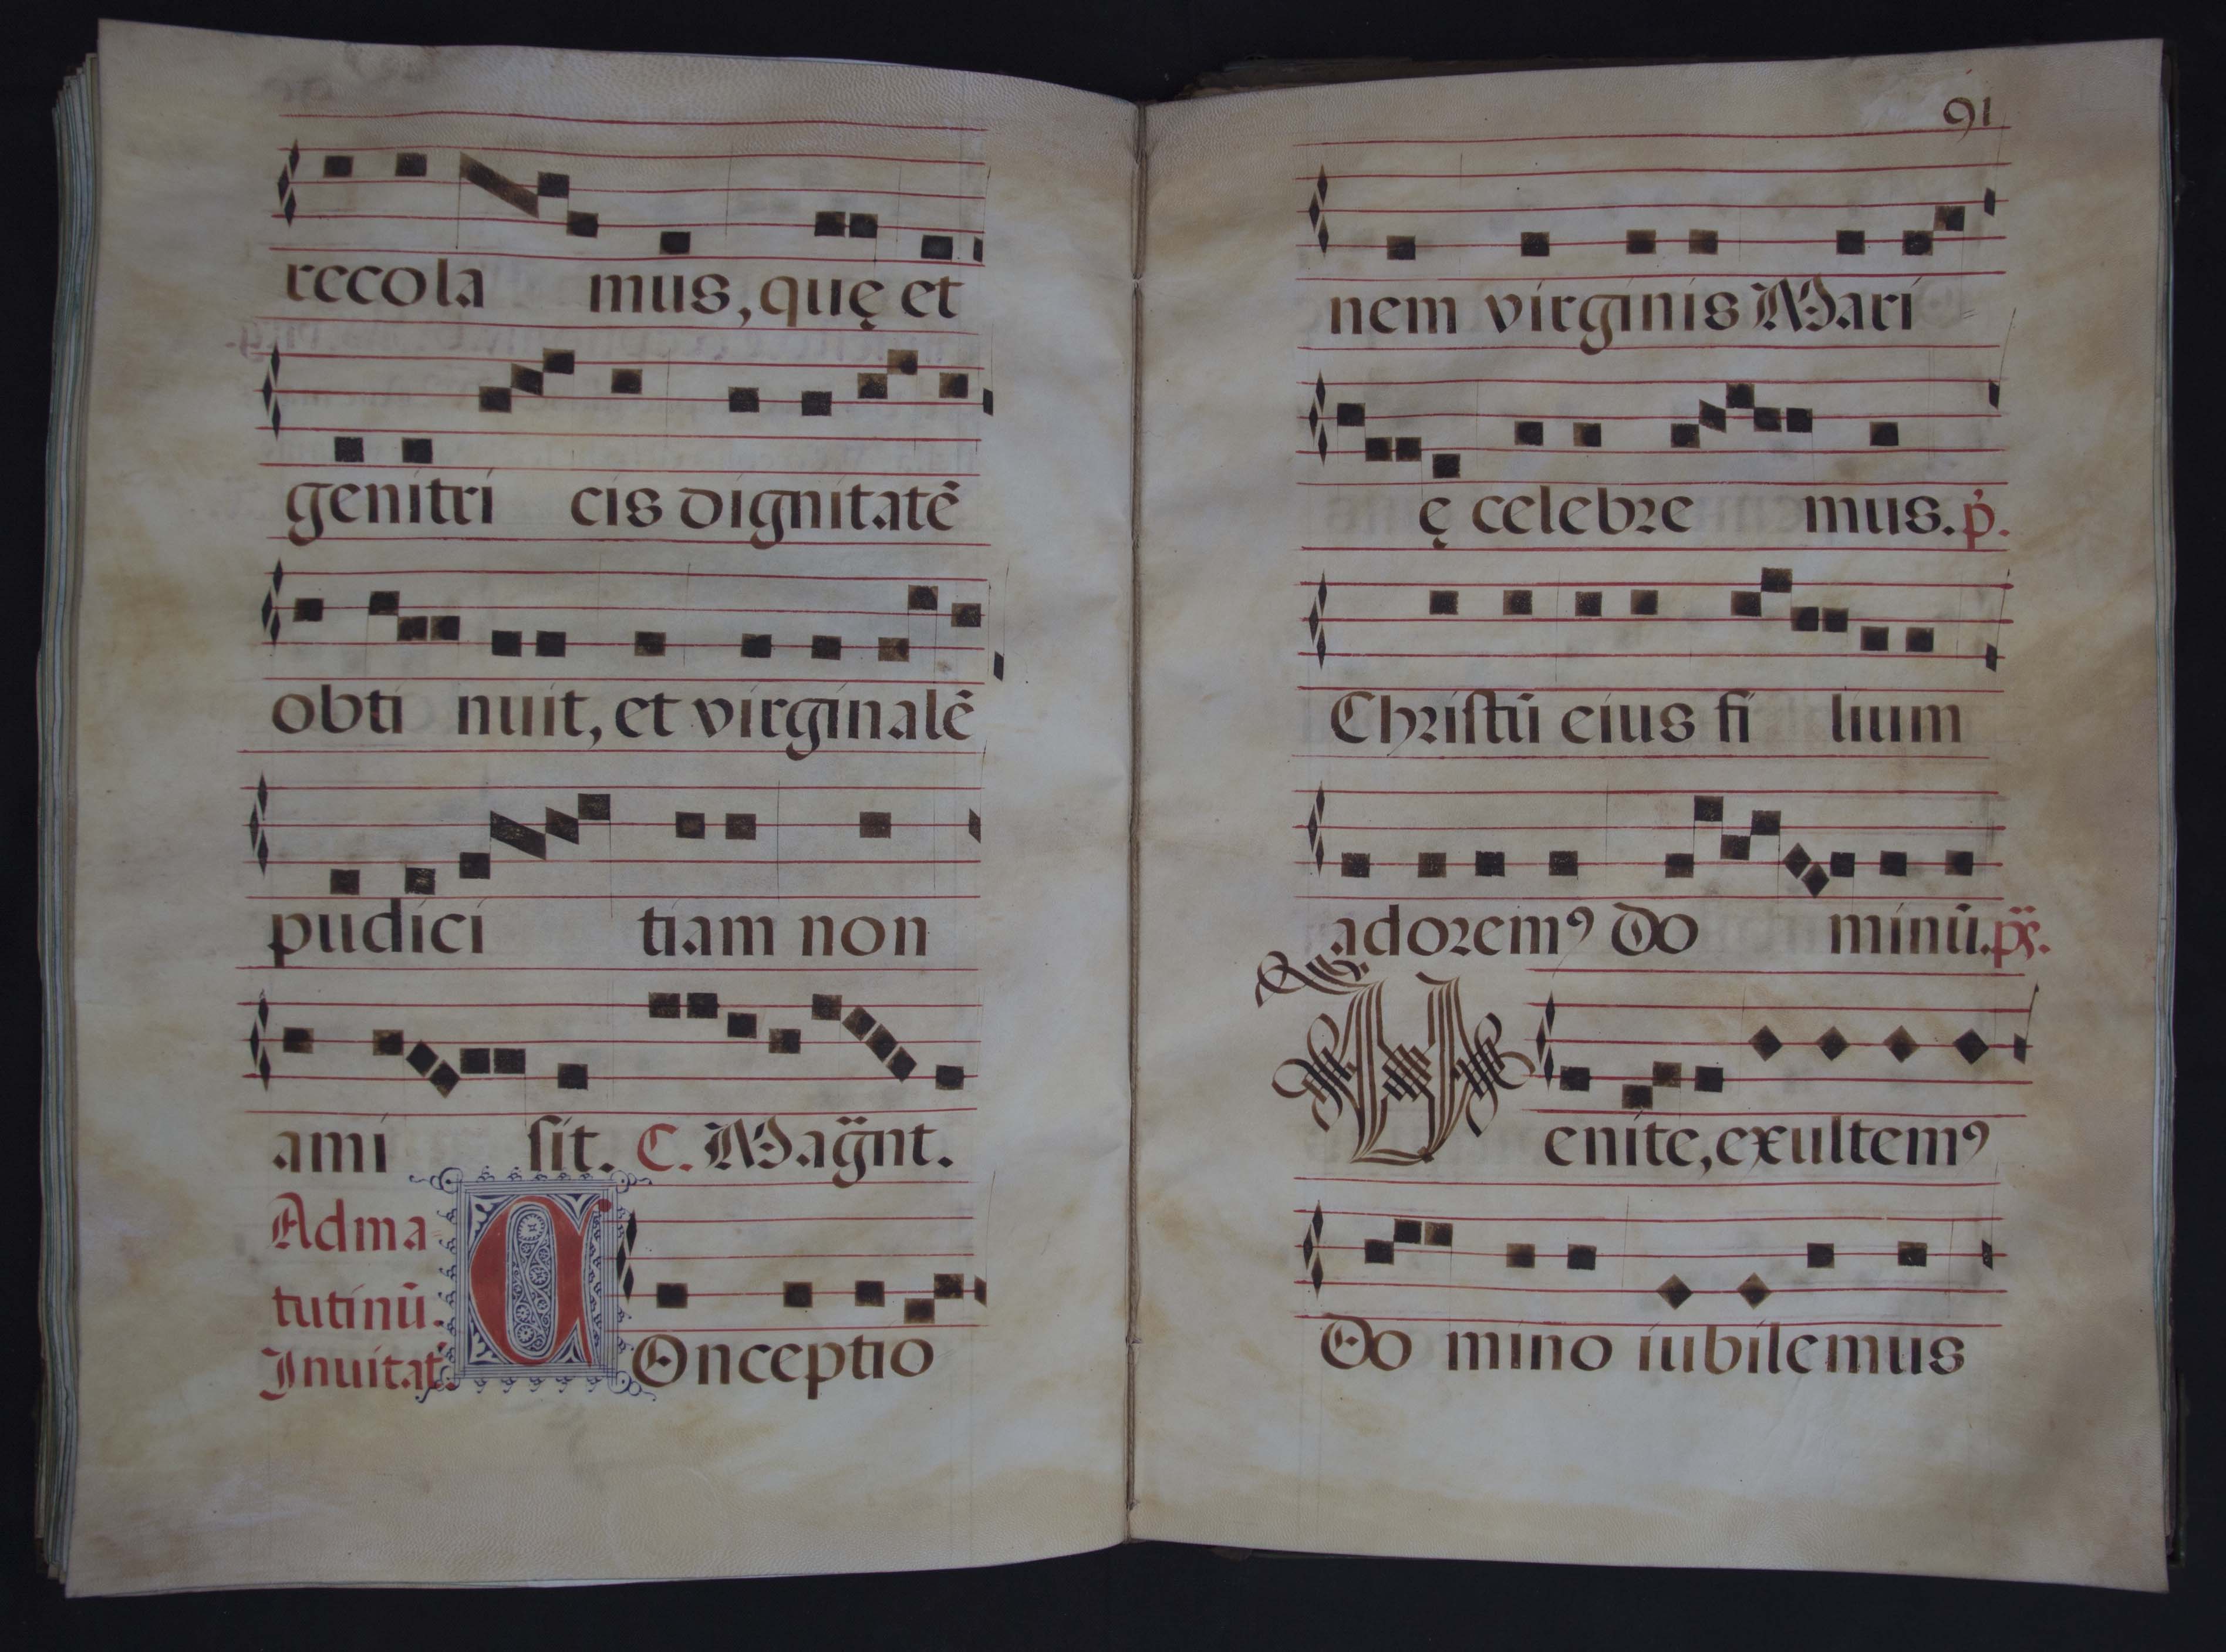 recola mus, quę et
genitri cis dignitatē
obti nuit, et virginalē
pudici tiam non
ami sit. C. Magñt.
Ad ma
tutinū.
Inuitat.
COnceptio
91
nem virginis Mari
ę celebre mus. p̄.
Christū eius fi lium
adoremꝰ Do minū. ps.
Venite, exultemꝰ
Do mino iubilemus